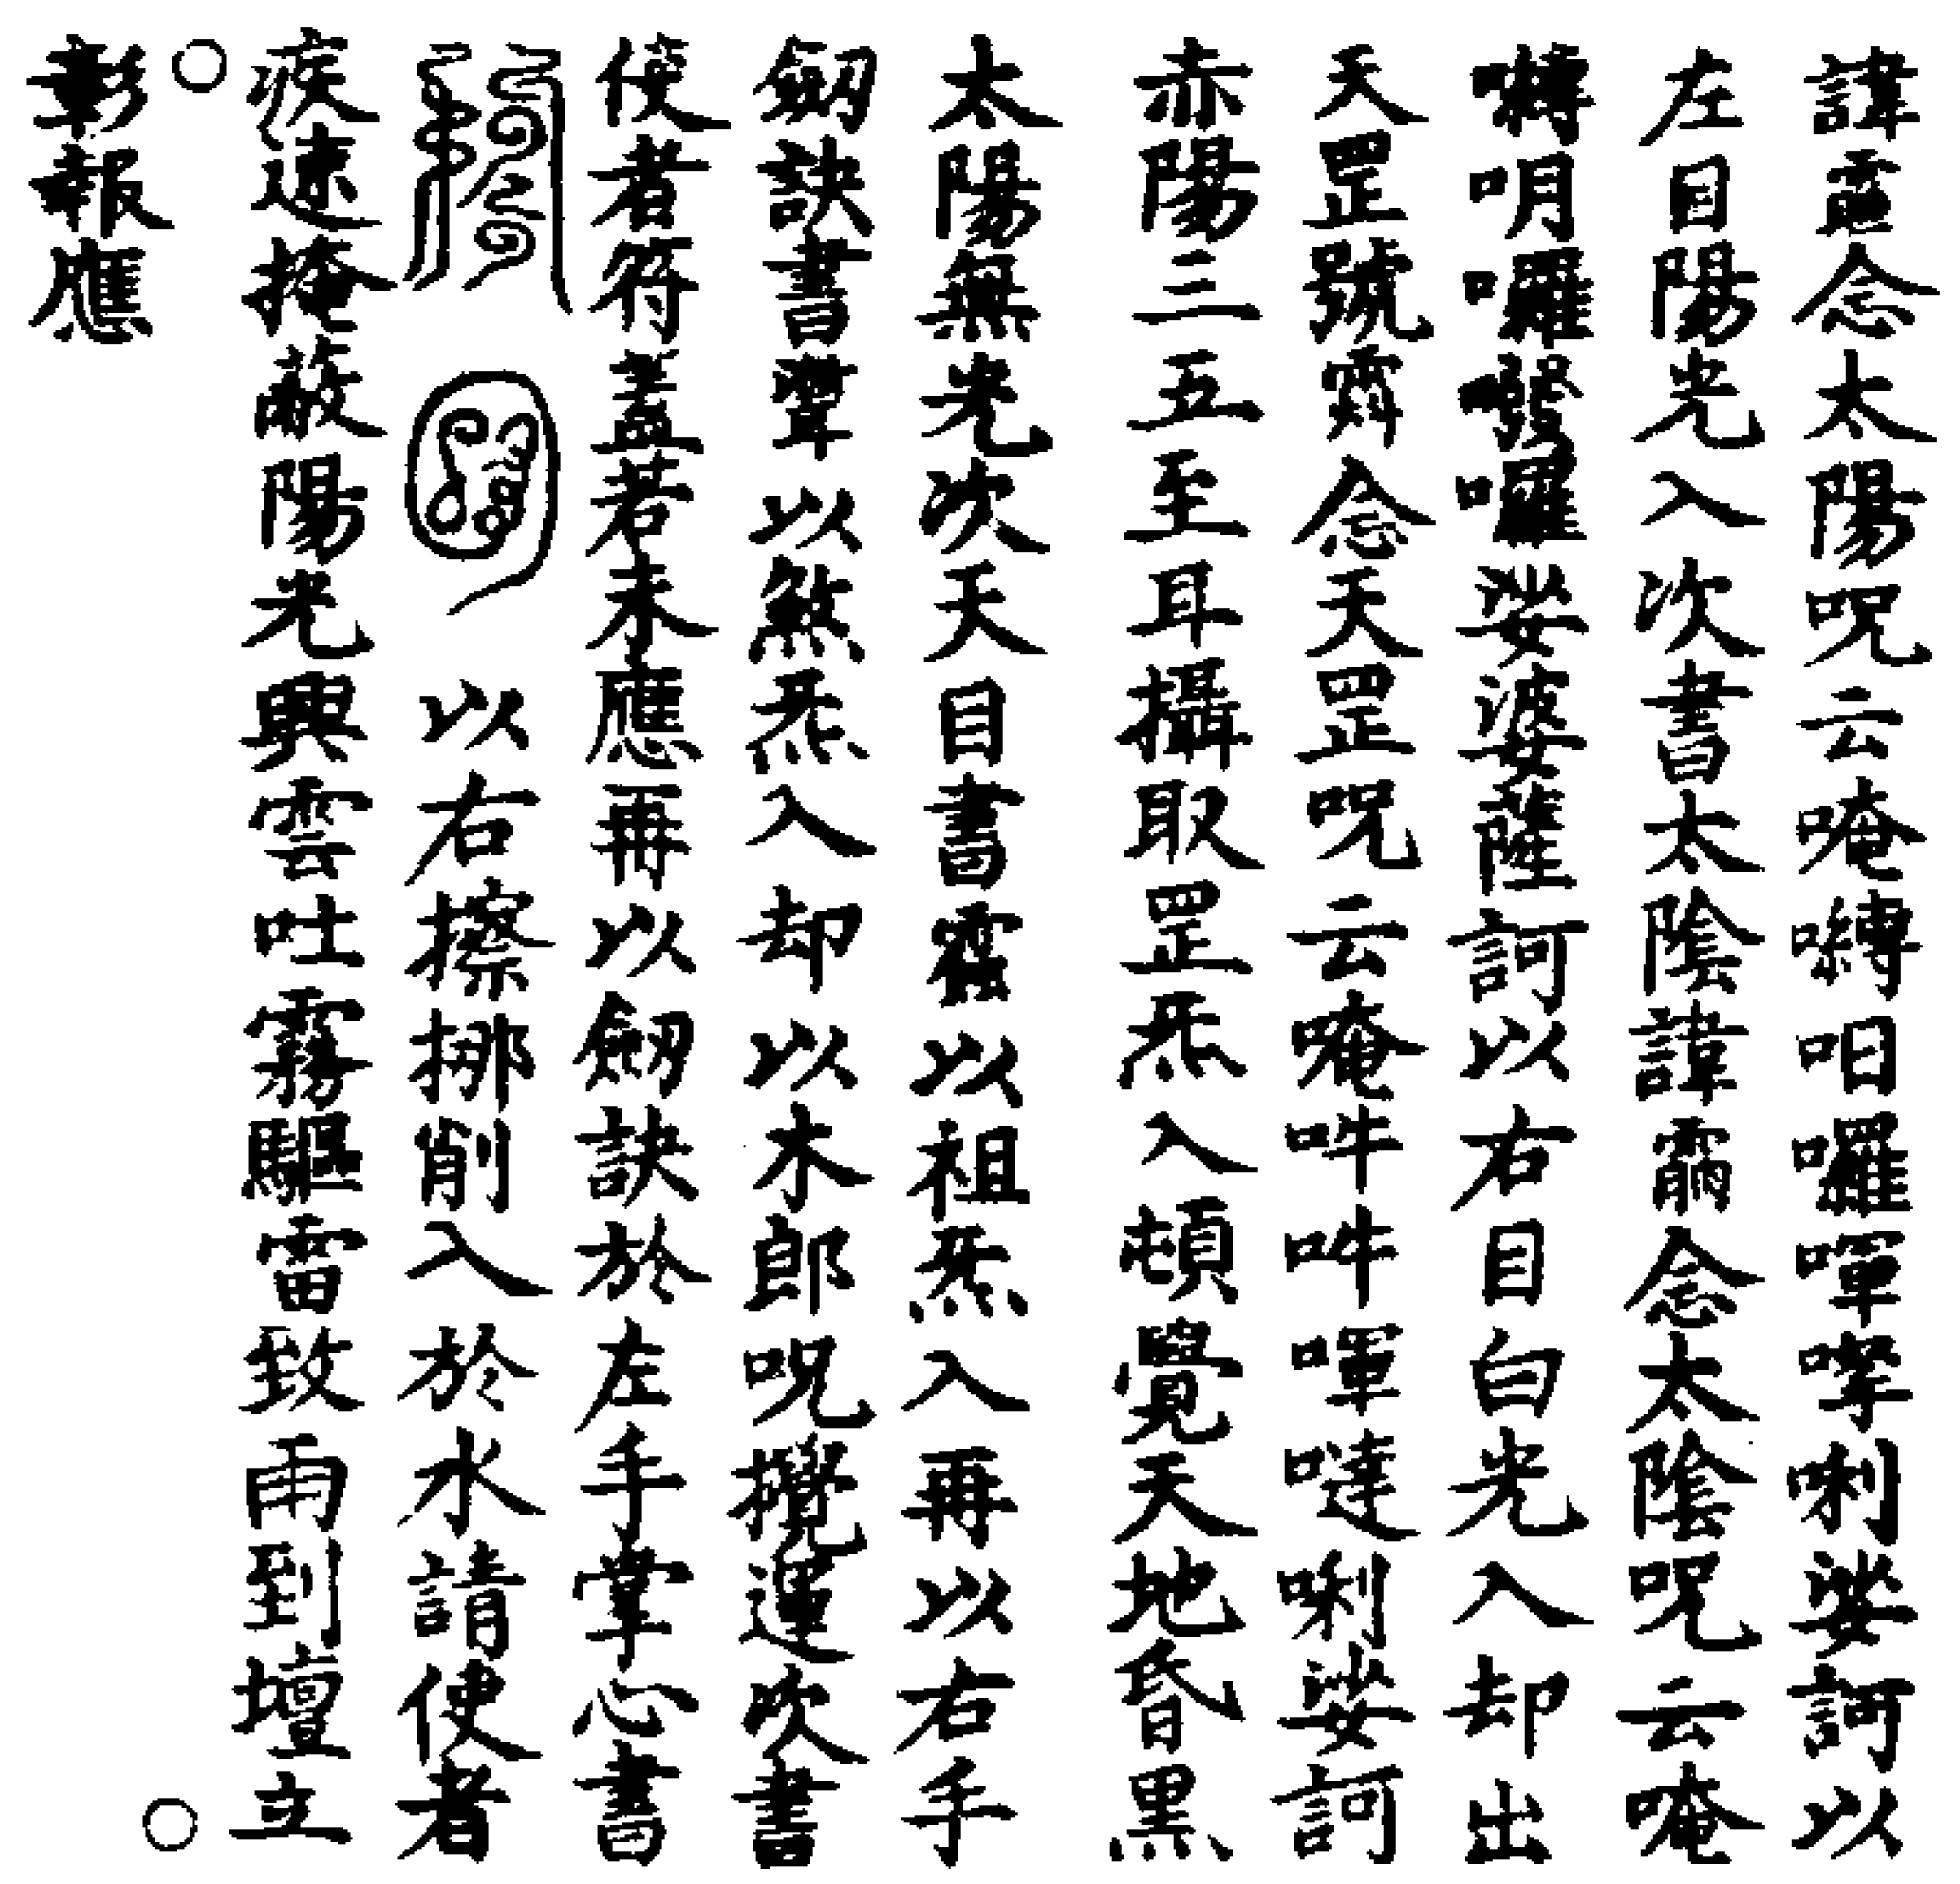 諱 念太陽呪云唵囀呾囉嗶嚩唎娑訶以
左目陽光入次書太陰諱 念太陰呪云唵
囀明囉 囉娑婆薩訶以右目白光入却出
天罡號 念天罡呪云唵吽吽嗶噠唎娑訶
赤陽三五至耳攝取罡炁入頓覺天地昏黑
太陽無光次天目書 以祖炁入再以右手
劒訣書 以煞炁入却以木郎呪攪運吹書
使者符蓋若未應再以劒訣於左手掌心書
以右擦挪削入於水請使者
疾速掩蔽陽光興雲吐霧驅雷致雨到壇立
彰報應